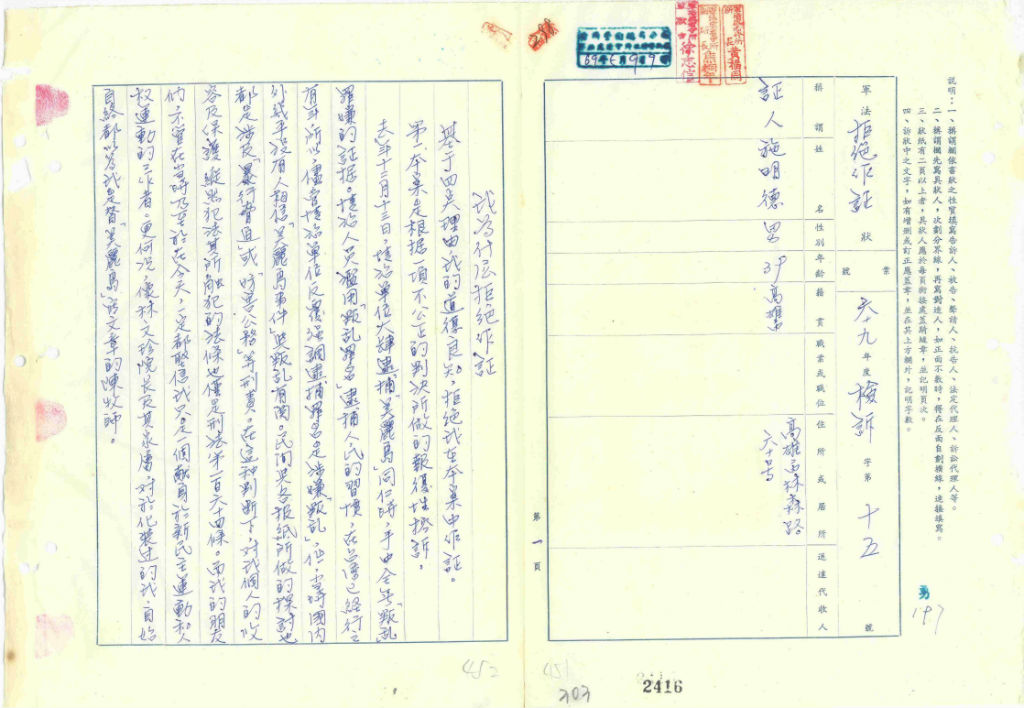 說明：一、稱謂欄依書狀之性質填寫告訴人、被告、聲請人、抗告人、法定代理人、訴訟代理人等。
二、稱謂欄先寫具狀人，次劃分界線，再寫對造人，如正面不敷時，得在反面自劃橫線，連接填寫。
三、狀紙有二頁以上者，具狀人應於每頁銜接處蓋騎縫章，並記明頁次。
四、訴狀中之文字，如有增刪或訂正應蓋章，並在其上方欄外，記明字數。
197
軍法 拒絕作証 狀
案號 六九年度 檢訴 字第 十五 號
稱謂 姓名 性別 年齡 籍貫 職業或職位 住所或居所 送達代收人
証人 施明德 男 39 高雄 高雄市林森路
六十号
黃福同
徐志信
69年6月9日
第1頁
我為什么拒絕作証
基于四點理由我的道德良知，拒絕我在本案中作証。
第一本案是根据一項不公正的判決所做的報復性控訴。
去年十二月十三日，情治單位大肆逮捕「美麗島」同仁時，手中全無「叛乱
罪嫌」的証据。情治人員濫用「叛乱罪名」逮捕人民的習慣，在台灣已經行之
有年所以，儘管情治單位反覆強調逮捕罪名是涉嫌「叛乱」但，當時國内
外幾乎没有人相信「美麗島事件」與叛乱有関。民間與各報紙所做的探討也
都是涉及「暴行脅迫」或「妨害公務」等刑責。在這种判断下，对我個人的收
容及保護，縱然犯法其所触犯的法條也僅是刑法第一百六十四條。而我的朋友
們，不管在當時乃至於在今天，一定都堅信我只是一個献身於新民主運動和人
权運動的工作者。更何況，像林文珍院長及其家屬对於化裝过的我，自始
自終都以為我是替「美麗島」写文章的陳牧師。
452
451
303
2416